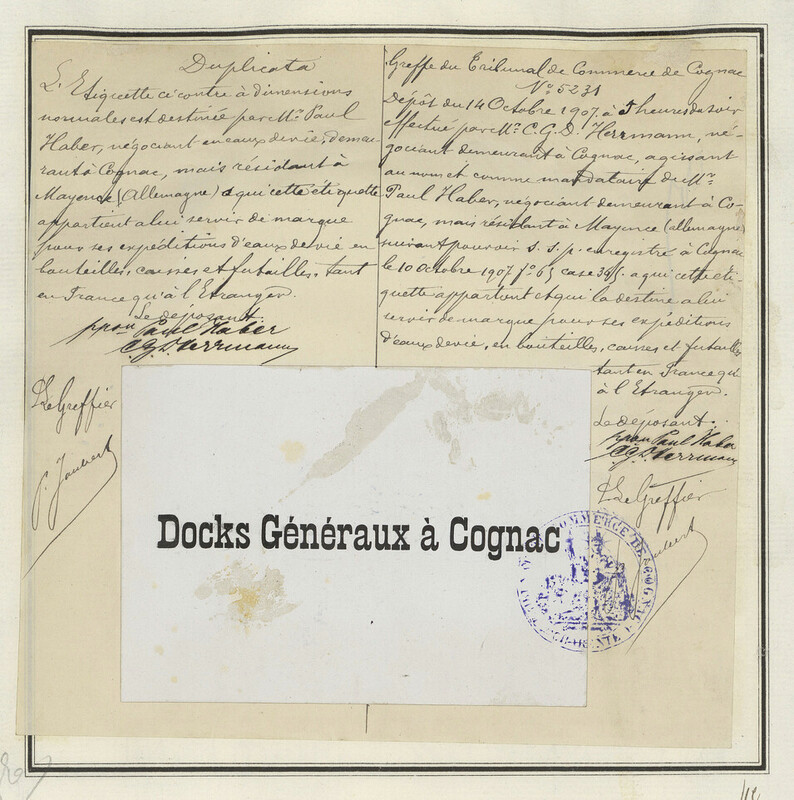 Duplicata
L'Etiquette ci contre à dimensions
normales est destinée par Mr. Paul
Haber, négociant en eaux de vie, demeu
rant à Cognac, mais résidant à
Mayence (Allemagne) à qui cette étiquette
appartient à lui servir de marque
pour ses expéditions d'eaux de vie en
bouteilles, caisses et futailles, tant
en France qu'à l'Etranger.
Le déposant
pron Paul Haber
C.G.D. Herrmann
Le Greffier
P. Joubert
Greffe du Tribunal de Commerce de Cognac
No. 5231
Dépôt du 14 Octobre 1907 à 5 heures du soir
effectué par Mr. C.G.D. Herrmann, né-
gociant demeurant à Cognac, agissant
au nom et comme mandataire de Mr.
Paul Haber, négociant demeurant à Co-
gnac, mais résidant à Mayence (allemagne)
suivant pouvoir s.s.p. enregistré à Cognac
le 10 Octobre 1907 fo. 65 case 395. a qui cette éti-
quette appartient et qui la destine a lui
servir de marque pour ses expéditions
d'eaux de vie, en bouteilles, caisses et futailles
tant en France qu'
à l'Etranger.
Le déposant.
pron Paul Haber
C.G.D. Herrmann
Le Greffier
Joubert
Docks Généraux à Cognac
COMMERCE DE COGNAC